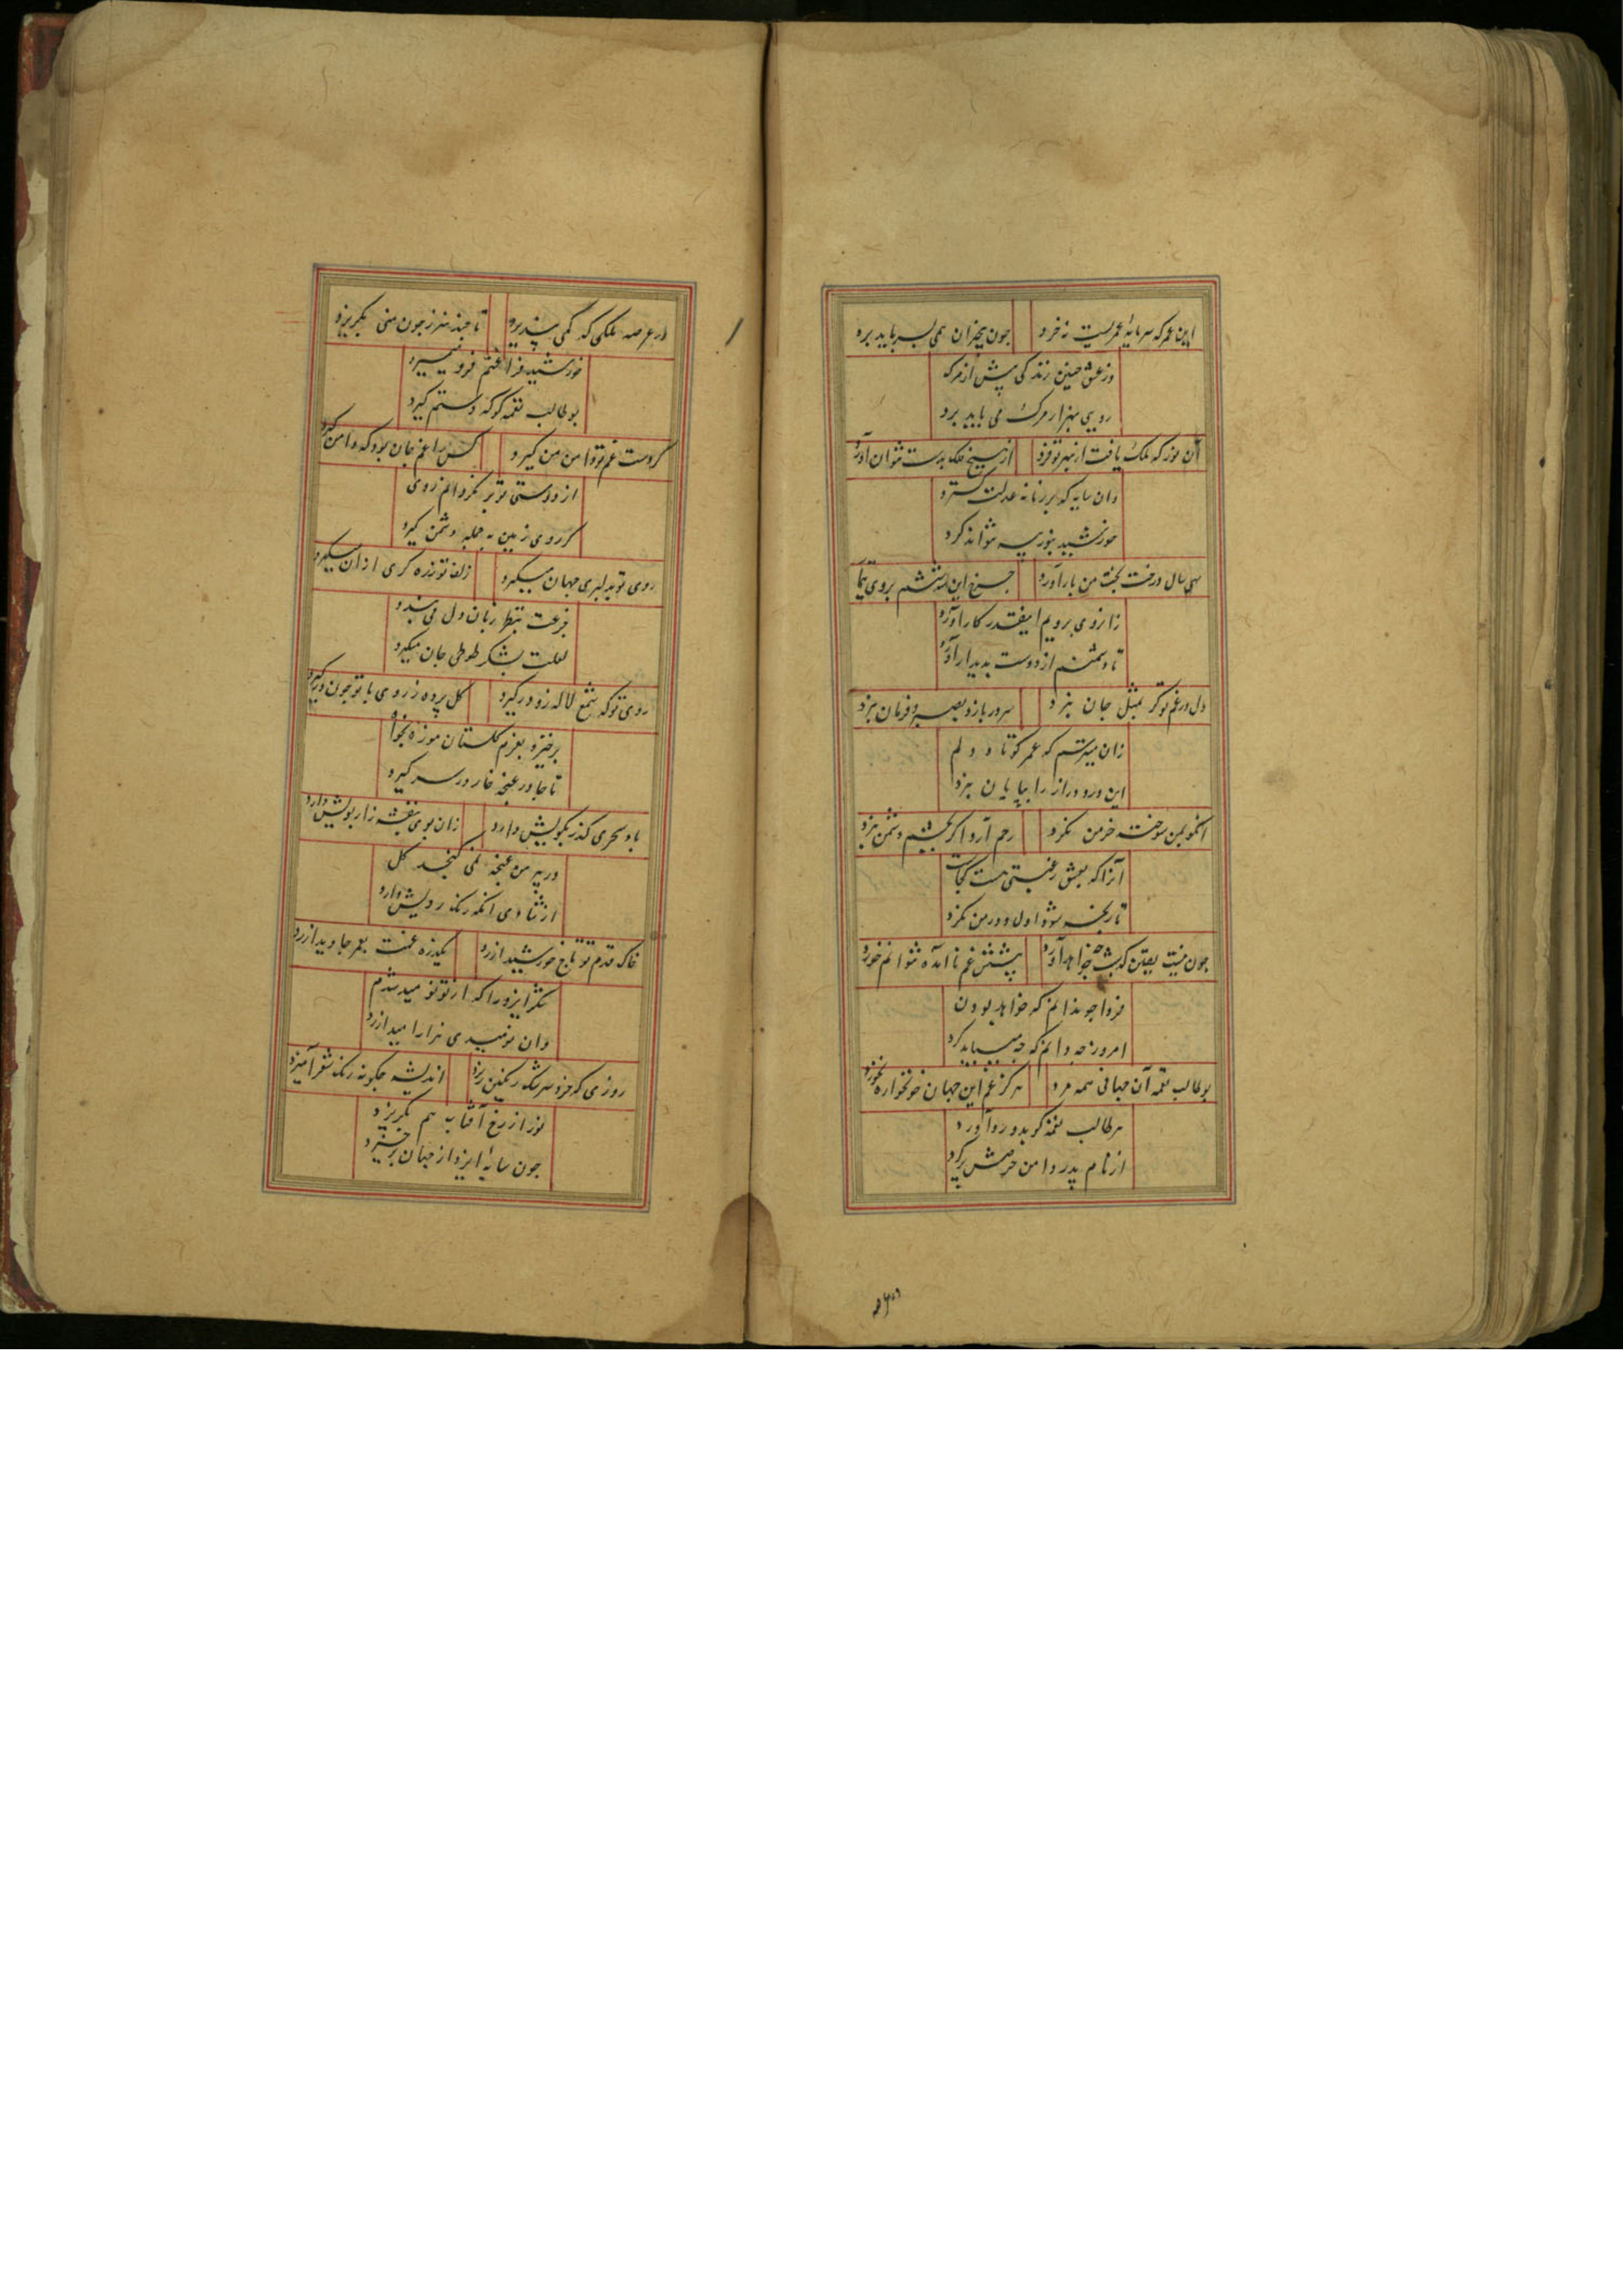 این عمر که سرمایه عمریست نه خرد
چون بیخبران همی بسر باید برد
وز عشق چنین زندگی پیش از مرگ
روزی بهزار مرگ می باید برد
آن نور که ملک یافت از مهر تو فرد
از سیخ فلک بدست نتوان آورد
وان سایه که بر زمانه عدلت گسترد
خورشید بنور سیه نتواند کرد
سی سال درخت بخت من بار آورد
چرخ این
زانروی برویم اینقدر کار آورد
تا دشمنم از دوست پدیدار آورد
دل در غم تو گر بمثل جان نبرد
سر در نیارد و بصبر فرمان نبرد
زان میترسم که عمر کوتاه دلم
این درد دراز را بپایان نبرد
انکو بمن سوخته خرمن نگرد
رحم آرد اگر بچشم دشمن نگرد
آنرا که بعشق رغبتی هست کجاست
تا رنجه شود اول و در من نگرد
چون نیست یقین که شب چه خواهد آورد
پیشش غم نا آمده نتوانم خورد
فردا چو ندانم که چه خواهد بودن
امروز چه دانم که چه میباید کرد
بوطالب نعمه آن جهانی همه مرد
هرگز غم این جهان خونخواره نخورد
هر طالب نعمه کو بدو رو آورد
از نام پدر دامن حرصش پر کرد
در عرصه ملکی که کمی نپذیرد
تا چند سر ز چون منی بگریزد
خورشید فراغتم فرو میمیرد
بوطالب نعمه کو که دستم گیرد
گر دست غم تو دامن من گیرد
کس را غم جان بود که دامن گیرد
از دوستی تو بر نگردانم روی
گر روی زمین به جمله دشمن گیرد
روی تو بدلبری جهان میگیرد
زلف تو زره گری از آن میگیرد
جزعت بنظر زبان دل می بندد
لعلت بشکر طوطی جان میگیرد
روی تو که شمع لاله زو درگیرد
گل پرده ز روی با تو چون درگیرد
برخیز و بعزم گلستان موزه بخواه
تا جا در غنچه خار در سر گیرد
باد سحری گذر بکویش دارد
زان بوی بنفشه زار بویش دارد
در پیرهن غنچه نمی گنجد گل
از شادی آنکه رنگ رویش دارد
خاک قدم تو تاج خورشید ارزد
یکذره غمت بعمر جاوید ارزد
شکر ایزد را که از تو نومید شدم
وان نومیدی هزار امید ارزد
روزی که خرد سرشک رنگین ریزد
اندیشه چگونه رنگ شعر آمیزد
نور از رخ آفتاب هم بگریزد
چون سایه ایزد از جهان برخیزد